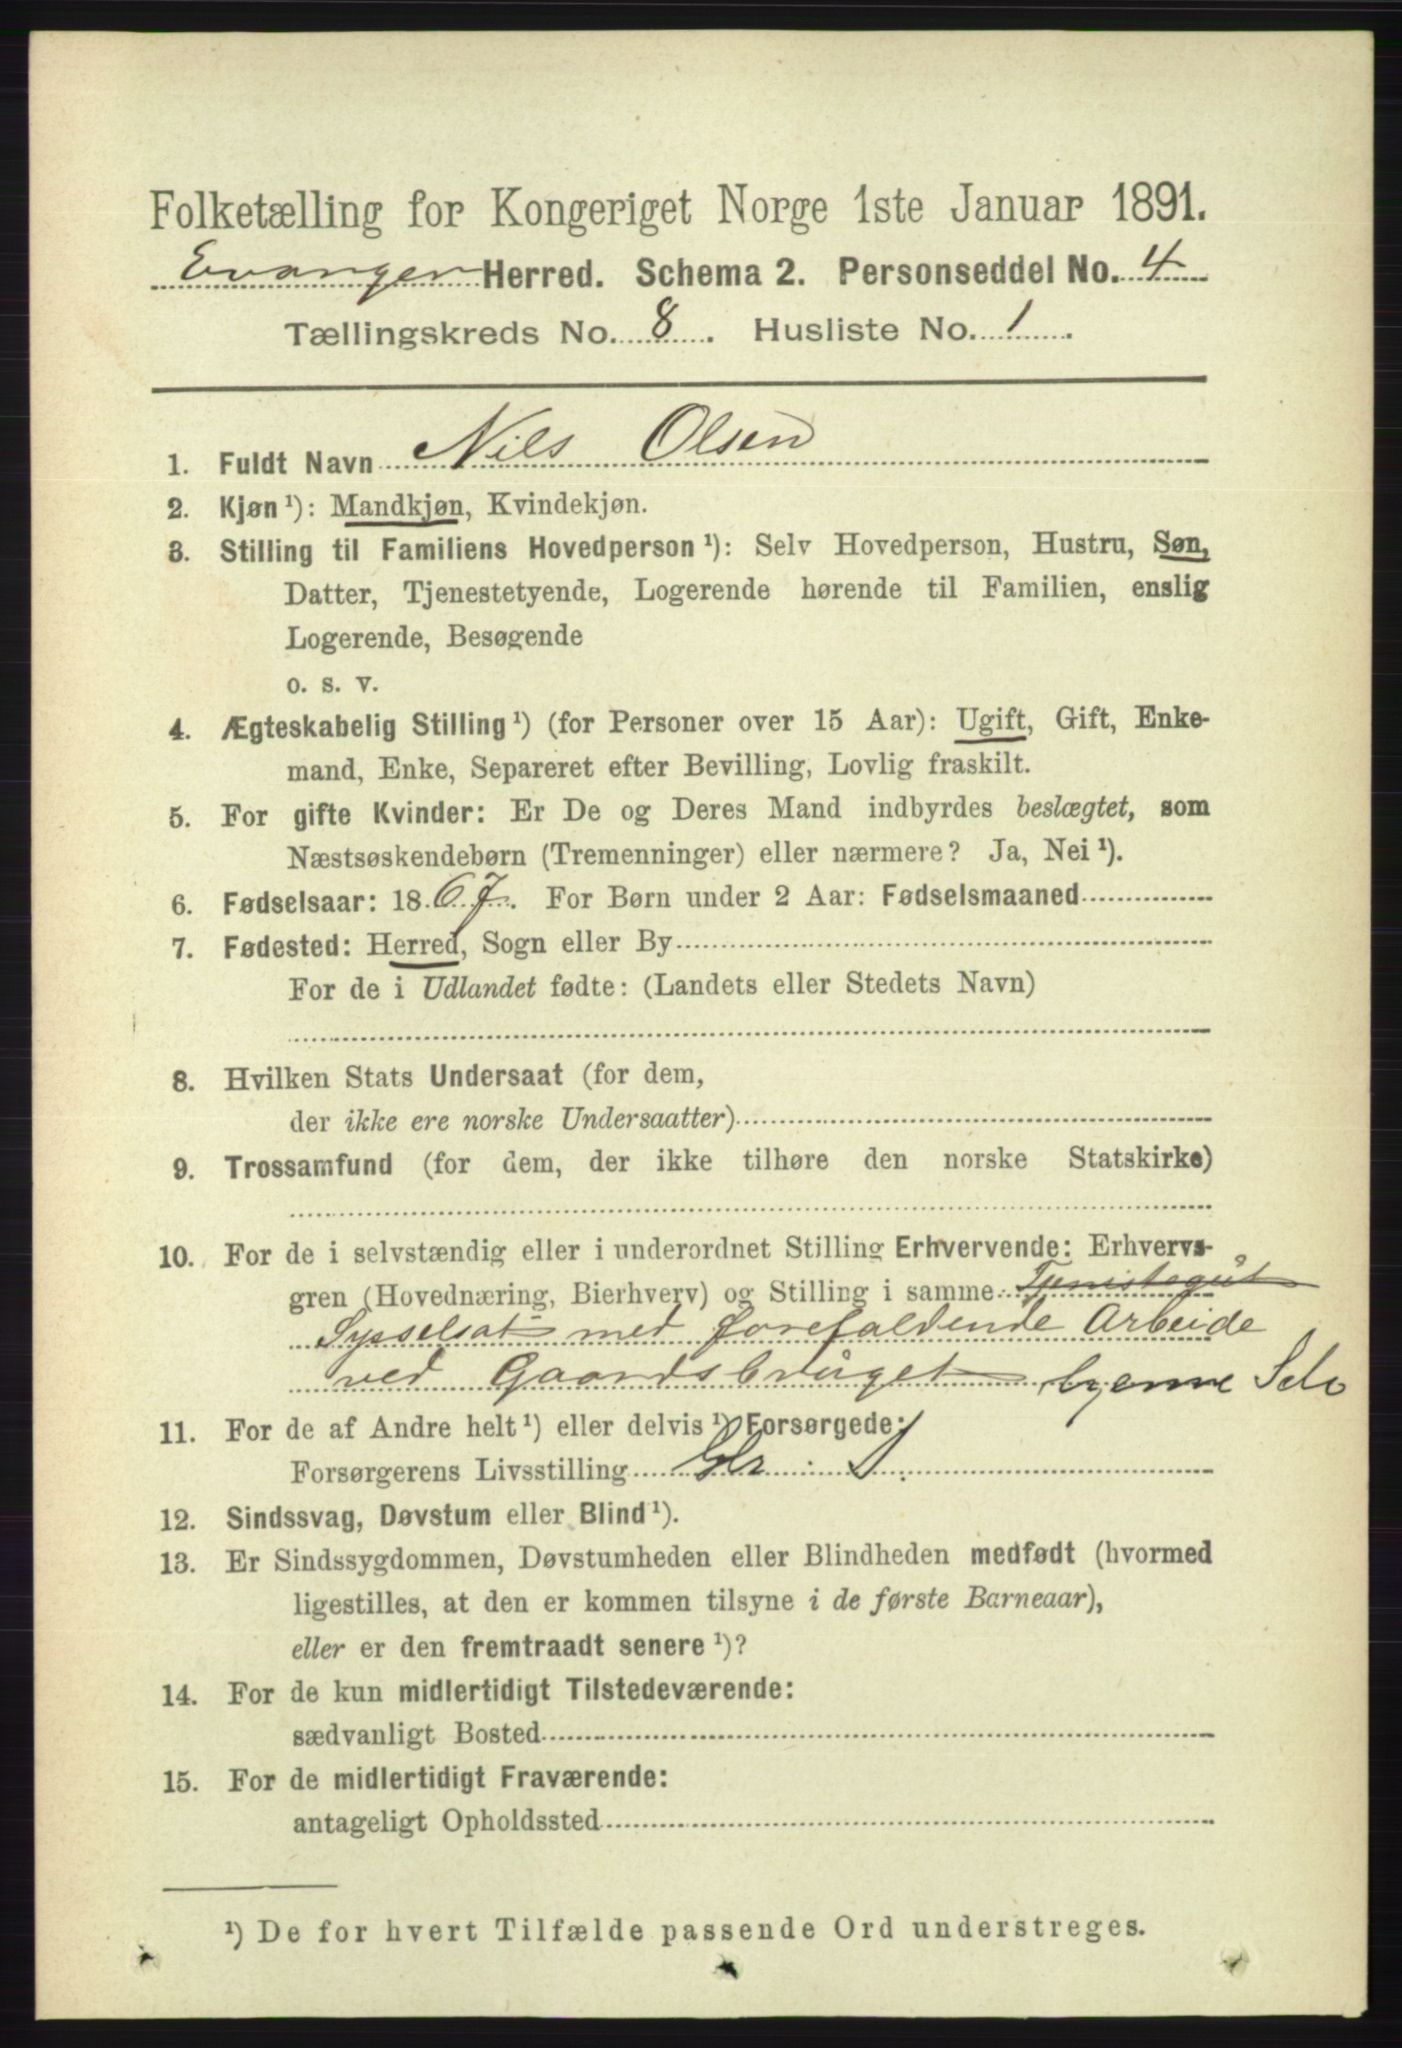 Folketælling for Kongeriget Norge 1ste Januar 1891.
Evanger Herred. Schema 2. Personseddel No. 4
Tællingskreds No. 8. Husliste No. 1.
1. Fuldt Navn Nils Olsen
2. Kjøn ¹): Mandkjøn, Kvindekjøn.
3. Stilling til Familiens Hovedperson ¹): Selv Hovedperson, Hustru, Søn,
Datter, Tjenestetyende, Logerende hørende til Familien, enslig
Logerende, Besøgende
o. s. v.
4. Ægteskabelig Stilling ¹) (for Personer over 15 Aar): Ugift, Gift, Enke-
mand, Enke, Separeret efter Bevilling, Lovlig fraskilt.
5. For gifte Kvinder: Er De og Deres Mand indbyrdes beslægtet, som
Næstsøskendebørn (Tremenninger) eller nærmere? Ja, Nei ¹).
6. Fødselsaar: 1867. For Børn under 2 Aar: Fødselsmaaned
7. Fødested: Herred, Sogn eller By
For de i Udlandet fødte: (Landets eller Stedets Navn)
8. Hvilken Stats Undersaat (for dem,
der ikke ere norske Undersaatter)
9. Trossamfund (for dem, der ikke tilhøre den norske Statskirke)
10. For de i selvstændig eller i underordnet Stilling Erhvervende: Erhvervs-
gren (Hovednæring, Bierhverv) og Stilling i samme Tjenistegut
Sysselsat med forefaldende Arbeide
ved Gaardsbruget hjemme
11. For de af Andre helt ¹) eller delvis ¹) Forsørgede:
Forsørgerens Livsstilling
12. Sindssvag, Døvstum eller Blind ¹).
13. Er Sindssygdommen, Døvstumheden eller Blindheden medfødt (hvormed
ligestilles, at den er kommen tilsyne i de første Barneaar),
eller er den fremtraadt senere ¹)?
14. For de kun midlertidigt Tilstedeværende:
sædvanligt Bosted
15. For de midlertidigt Fraværende:
antageligt Opholdssted
¹) De for hvert Tilfælde passende Ord understreges.